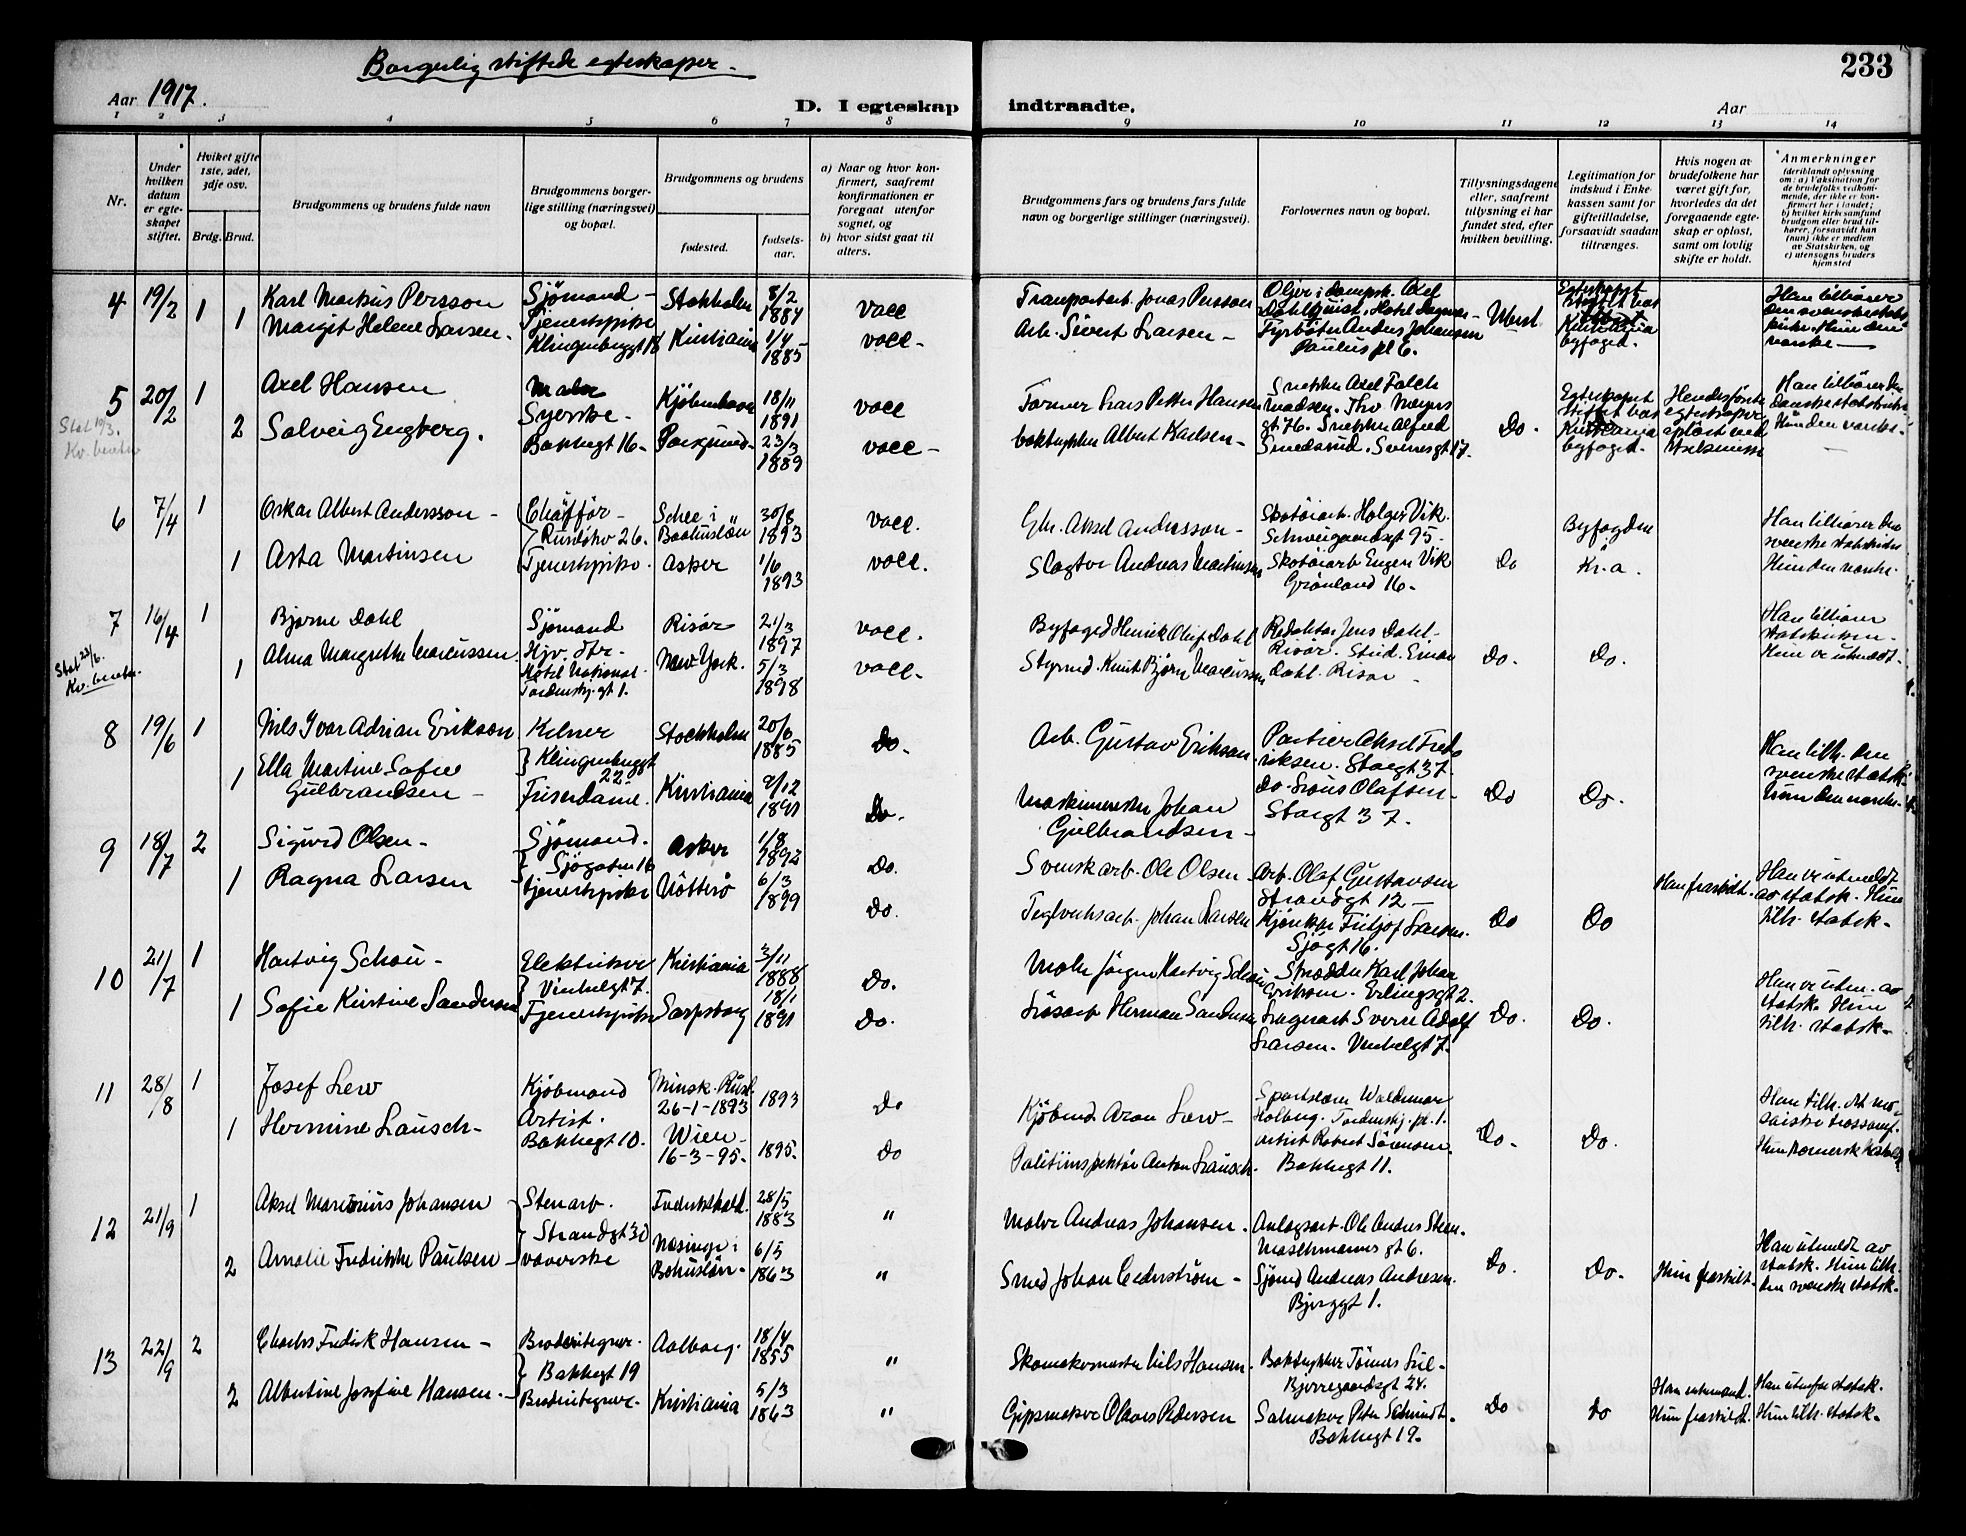 Borgerlig stiftede egteskaper.
233
Aar 1917.
D. I egteskap indtraadte.
Aar
1 2 3 4 5 6 7 8 9 10 11 12 13 14
Nr.
Under hvilken datum er egteskapet stiftet.
Hvilket gifte 1ste, 2det, 3dje osv.
Brdg. Brud.
Brudgommens og brudens fulde navn
Brudgommens borgerlige stilling (næringsvei) og bopæl.
Brudgommens og brudens
fødested.
fødselsaar.
a) Naar og hvor konfirmert, saafremt konfirmationen er foregaat utenfor sognet, og
b) hvor sidst gaat til alters.
Brudgommens fars og brudens fars fulde navn og borgerlige stillinger (næringsvei).
Forlovernes navn og bopæl.
Tillysningsdagene eller, saafremt tillysning ei har fundet sted, efter hvilken bevilling.
Legitimation for indskud i Enkekassen samt for giftetilladelse, forsaavidt saadan tiltrænges.
Hvis nogen av brudefolkene har været gift før, hvorledes da det foregaaende egteskap er opløst, samt om lovlig skifte er holdt.
Anmerkninger (deriblandt oplysning om: a) Vaksination for de brudefolks vedkommende, der ikke er konfirmert her i landet; b) hvilket kirkesamfund brudgom eller brud tilhører, forsaavidt han (hun) ikke er medlem av Statskirken, og c) utensogns bruders hjemsted
4 19/2 1 Karl Markus Persson Sjømand - Stokholm 8/2 1884 vacc Transportarb. Jonas Persson
1 Margit Helene Larsen. Tjenestepike Klingenbergt 18 Kristiania 1/4 1885 vacc - Arb. Sivert Larsen - Fyrbøter Anders Johansen Paulus pl 6.
Egteskapet Kristiania byfoged.
Han tilhører den svenske statskirke. Hun den norske
5 20/2 1 Axel Hansen Maler Kjøbenhavn 18/11 1891 vacc Farver Lars Petter Hansen
2 Solveig Engberg. Syerske - Bakkegt 16 - Porsgrund - 23/3 1889 vacc - boktrykker Albert Karlsen -
Snekker Axel Falck Madsen. Thv Meyers gt 76. Snekker Alfred Smedsrud. Svenes gt 17.
Do. Egteskapet stiftet hos Kristiania byfoged.
Hendes første egteskap er opløst ved skilsmisse
Han tilhører den danske statskirke Hun den norske.
6 7/4 1 Oskar Albert Andersson - Chaffør - 26. Schee i Baahuslän 30/8 1893 vacc. Gbr. Aksel Andersson -
1 Asta Martinsen Tjenestepike. Asker 1/6 1893 vacc. Slagter Andreas Martinsen
Skotøiarb. Holger Vik. Schweigaardsgt 95 - Skotøiarb Eugen Vik Grønland 16 -
Do Byfogden Kr.a.
Han tilhører den svenske statskirke Hun den norske.
7 16/4 1 Bjarne Dahl Sjømand Risør 21/3 1897 vacc. Byfoged Henrik Oluf Dahl
1 Alma Margrethe Marcussen Hjv. dtr - Hotel National Tordenskj. gt 1. New York. 5/3 1898 vacc - Styrmd. Knut Bjørn Marcussen
Redaktør Jens Dahl - Risør. Stud. Einar Dahl. Risør -
Do. Do.
Han tilhører statskirken - Hun er utmeldt.
8 19/6 1 Nils Ivar Adrian Erikson Kelner Stockholm 20/6 1885 Do. Arb. Gustav Erikson
1 Ella Martine Sofie Gulbrandsen - Klingenbergt 22. Friserdame. Kristiania 9/12 1891 Do. Maskinmester Johan Gulbrandsen -
Portier Aksel Fredriksen. Storgt 37. do. Olafsen - Storgt 37.
Do Do.
Han tilh. den svenske statsk. hun den norske.
9 18/7 2 Sigurd Olsen - Sjømand. Sjøgaten 16 Asker 1/8 1892 Do. Svensk arb. Ole Olsen
1 Ragna Larsen tjenestepike Nøtterø 6/3 1899 Do. Teglverksarb. Johan Larsen
Arb. Olaf Gustavsen Strandgt 12 - Kjørekar Fritjof Larsen. Sjøgt 16.
Do Do Han fraskilt.
Han er utmeldt av statsk. Hun tilh. statsk -
10 21/7 1 Hartvig Schou - Elektriker Vinkelgt 7. Kristiania 3/11 1888 Do. Maler Jørgen Hartvig Schou
1 Sofie Kirstine Sandersen Tjenestepike Sarpsborg 18/1 1891 Do. Løsarb Herman Sandersen
Skrædder Karl Johan Erikson. Erlingsgt 2. Lagerarb Sverre Adolf Larsen. Vinkelgt 7.
Do. Do.
Han er utm. av statsk. Hun tilh. statsk -
11 28/8 1 Josef Lew Kjøbmand Minsk. Rusl. 26-1-1893 1893 do Kjøbmd. Aron Lew -
1 Hermine Lausch - Artist. Bakkegt 10. Wien - 16-3-95. 1895. do Politiinspektør Anton Lausch.
Sportslærer Waldemar Holberg. Tordenskj. pl. 1. Artist Robert Sørensen. Bakkegt 11.
Do. Do.
Han tilh. det mosaiske trossamf. Hun Romersk Kathol
12 21/9 1 Aksel Marinius Johansen Stenarb. Strandgt 30 Fredrikshald. 28/5 1883 " Maler Andreas Johansen.
2 Amalie Fredrikke Paulsen - væverske Næsinge i Bohuslän - 6/5 1863 " Smed Johan Cederstrøm -
Anlægsarb. Ole Anders Steen. Maschmanns gt 6. Sjømd Andreas Andresen. Bjerggt 1.
Do. Do. Hun fraskilt.
Han utmeldt av statsk. Hun tilh. den svenske statsk.
13 22/9 2 Charles Fredrik Hansen - Broderitegner. Bakkegt 19 Aalborg. 18/4 1855 " Skomakermester Nils Hansen.
2 Albertine Josefine Hansen. - Broderitegner. Kristiania 5/3 1863 " Gipsmaker Olaves Pedersen
Boktrykker Tønnes Lul - Bjerregaardsgt 24. Salmaker Peter Schmidt. Bakkegt 19.
Do do Han enkemand. Hun fraskilt.
Han utm fra statsk. Hun tilh. statsk.